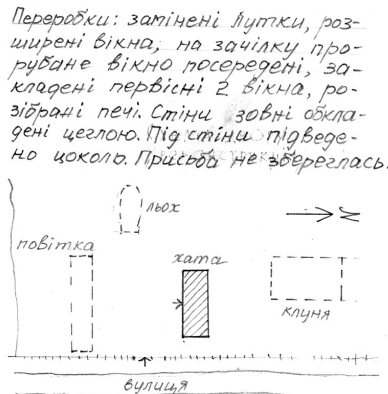 Переробки: замінені лутки, роз-
ширені вікна, на зачілку про-
рубане вікно посередені, за-
кладені первісні 2 вікна, ро-
зібрані печі. Стіни зовні обкла-
дені цеглою. Під стіни підведе-
но цоколь. Присьба не збереглась.
льох
N
повітка
хата
клуня
вулиця